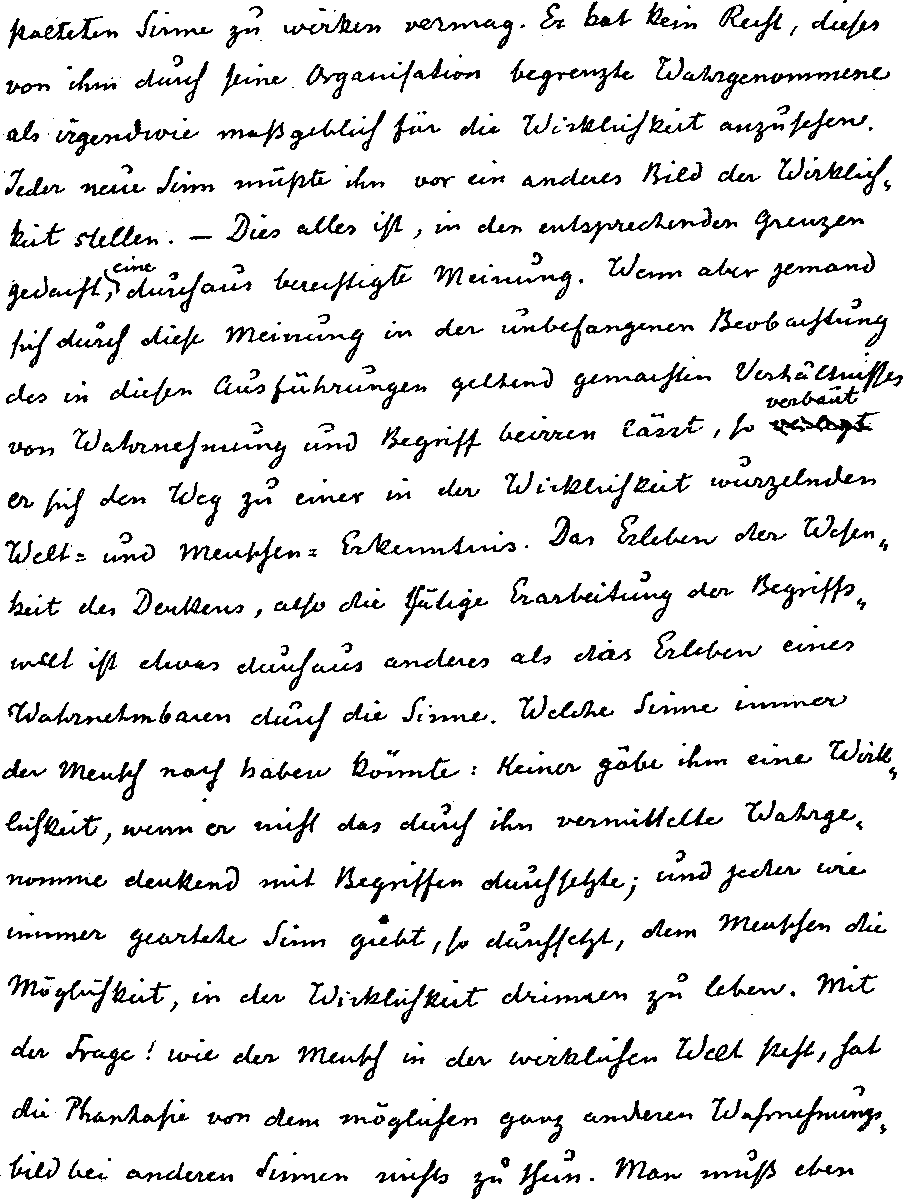 stalteten Sinne zu wirken vermag. Er hat kein Recht, dieses
von ihm durch seine Organisation begrenzte Wahrgenommene
als irgendwie maßgeblich für die Wirklichkeit anzusehen.
Jeder neue Sinn müßte ihn vor ein anderes Bild der Wirklich-
keit stellen. — Dies alles ist, in den entsprechenden Grenzen
gedacht, eine durchaus berechtigte Meinung. Wenn aber jemand
sich durch diese Meinung in der unbefangenen Beobachtung
des in diesen Ausführungen geltend gemachten Verhältnisses
von Wahrnehmung und Begriff beirren lässt, so verbaut
er sich den Weg zu einer in der Wirklichkeit wurzelnden
Welt= und Menschen= Erkenntnis. Das Erleben der Wesen-
heit des Denkens, also die thätige Erarbeitung der Begriffs-
welt ist etwas durchaus anderes als das Erleben eines
Wahrnehmbaren durch die Sinne. Welche Sinne immer
der Mensch noch haben könnte: Keiner gäbe ihm eine Wirk-
lichkeit, wenn er nicht das durch ihn vermittelte Wahrge-
nomme denkend mit Begriffen durchsetzte; und jeder wie
immer geartete Sinn giebt, so durchsetzt, dem Menschen die
Möglichkeit, in der Wirklichkeit drinnen zu leben. Mit
der Frage: wie der Mensch in der wirklichen Welt steht, hat
die Phantasie von dem möglichen ganz anderen Wahrnehmungs-
bild bei anderen Sinnen nichts zu thun. Man muß eben